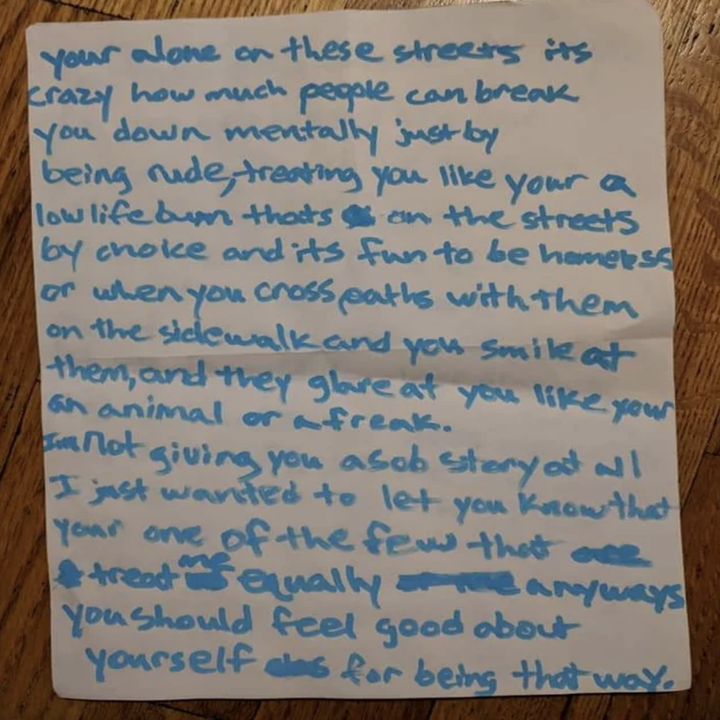 your alone on these streets its
crazy how much people can break
you down mentally just by
being rude, treating you like your a
low life bum thats on the streets
by choice and its fun to be homelss
or when you cross paths with them
on the sidewalk and you smile at
them, and they glare at you like your
an animal or a freak.
Im Not giving you a sob story at all
I just wanted to let you know that
your one of the few that
treat me equally anyways
you should feel good about
yourself for being that way.